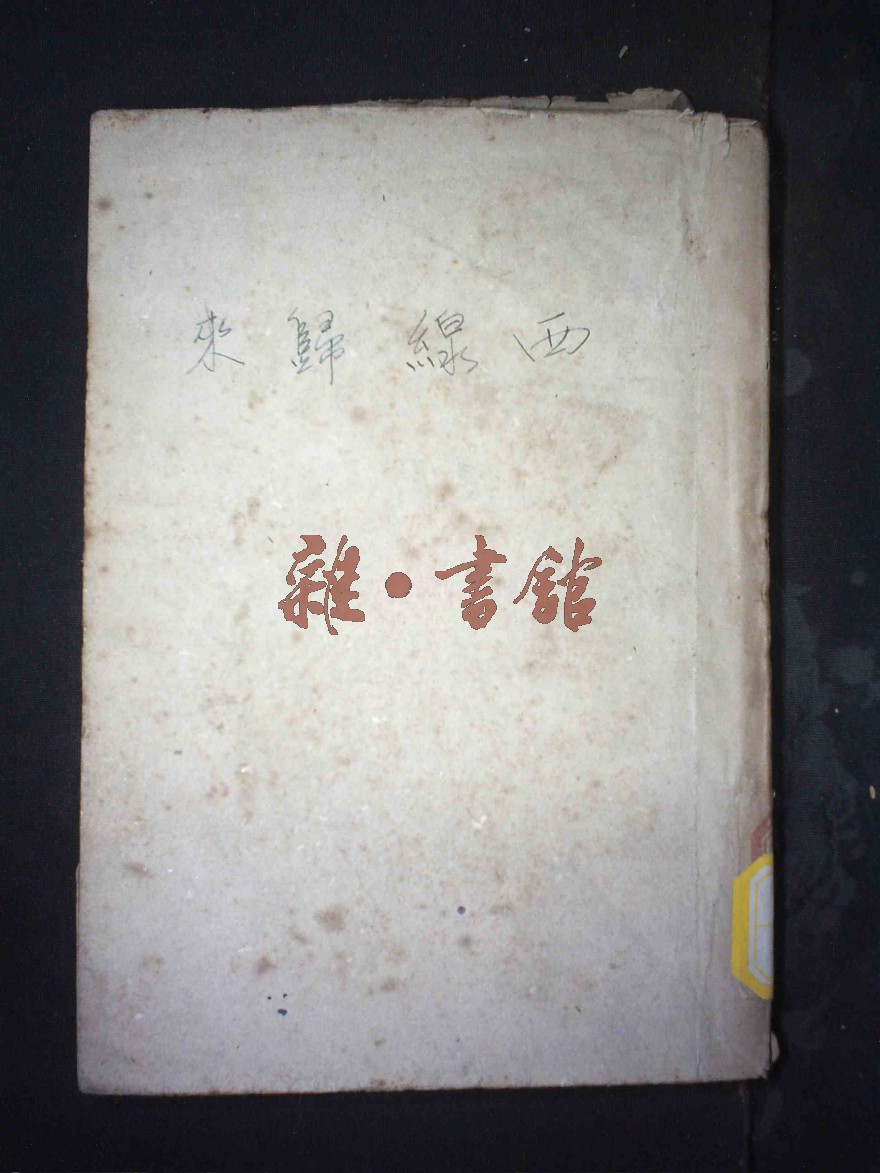 西線歸來
雜·書館